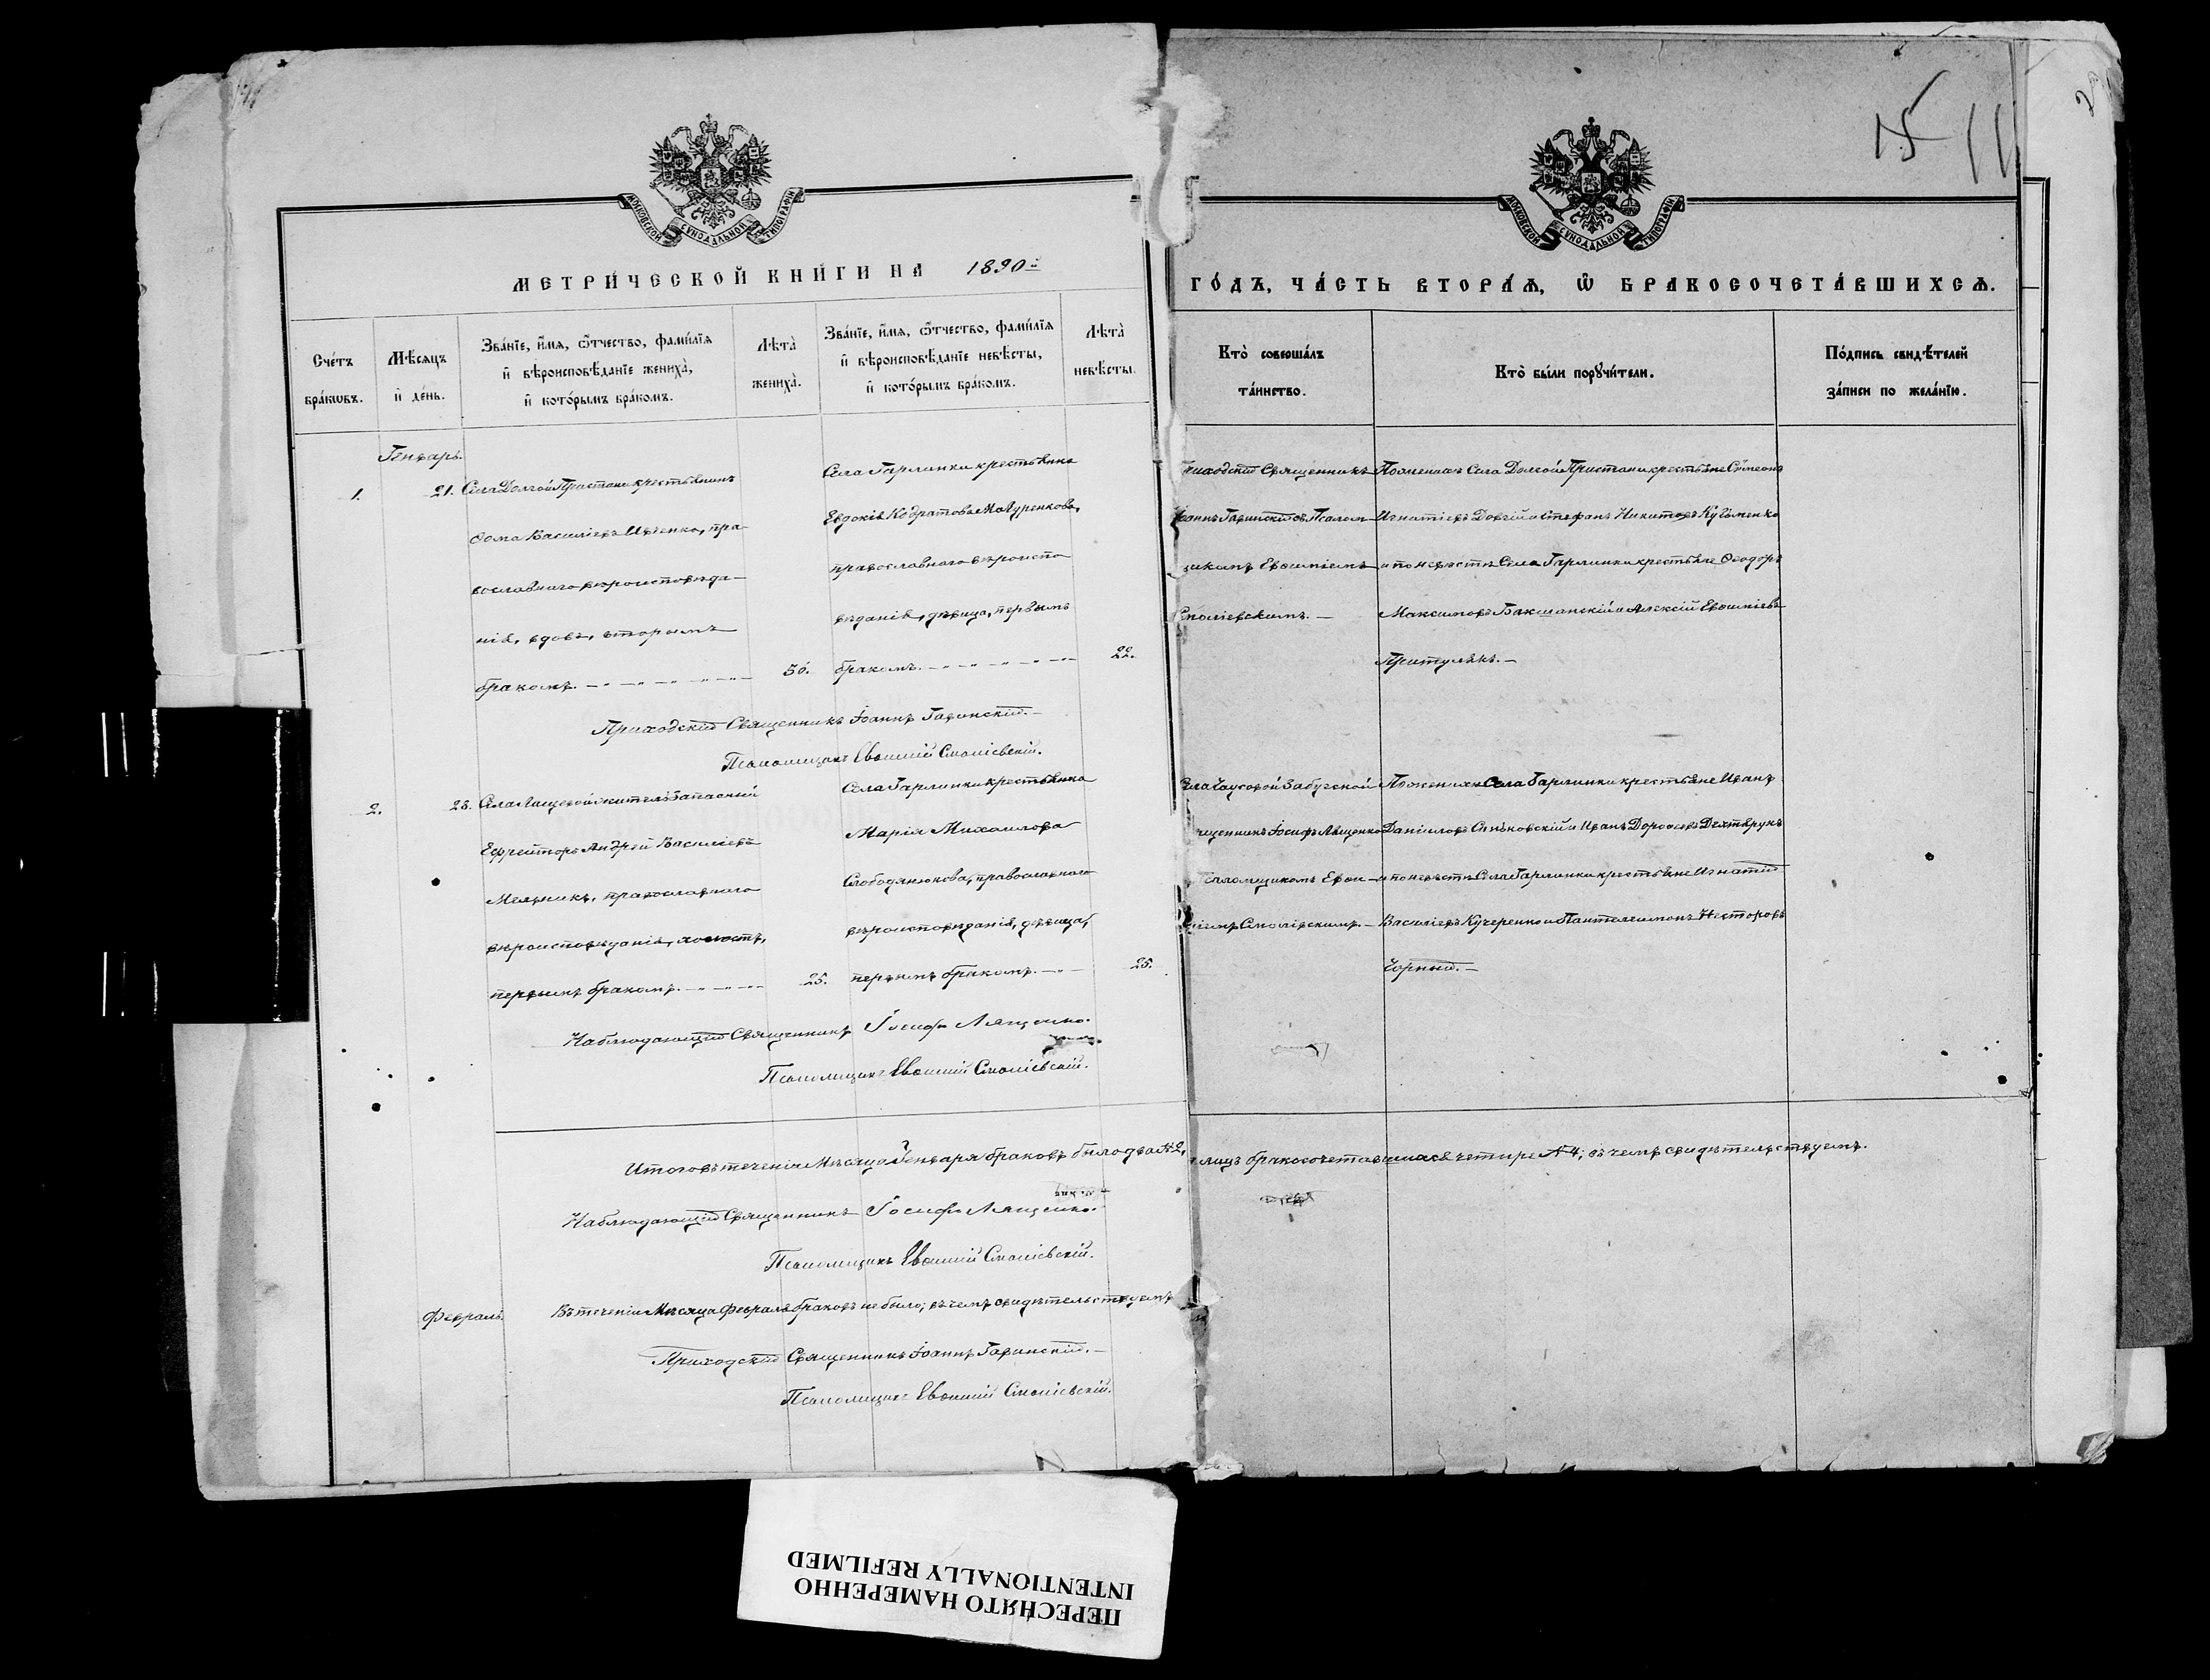 15 11
МОСКОВСКОЙ СѴНОДАЛЬНОЙ ТИПОГРАФІИ
МОСКОВСКОЙ СѴНОДАЛЬНОЙ ТИПОГРАФІИ
МЕТРИ́ЧЕСКОЙ КНИ́ГИ НА 1890й
ГО́ДЪ, ЧА́СТЬ ВТОРА́Ѧ, Ѡ҆ БРАКОСОЧЕТА́ВШИХСѦ.
Сче́тъ бра́кѡвъ.
Мѣ́сѧцъ и҆ де́нь.
Зва́нїе, и҆́мѧ, ѻ҆́тчество, фами́лїѧ
и҆ вѣроисповѣ́данїе жениха̀,
и҆ кото́рымъ бра́комъ.
Лѣта̀ жениха̀.
Зва́нїе, и҆́мѧ, ѻ҆́тчество, фами́лїѧ
и҆ вѣроисповѣ́данїе невѣ́сты,
и҆ кото́рымъ бра́комъ.
Лѣта̀ невѣ́сты.
Кто̀ соверша́лъ
та́инство.
Кто̀ бы́ли порꙋчи́тели.
По́дпись свидѣ́телей
за́писи по жела́нїю.
Генварь.
1. 21.
Села Долгой Пристани крестьянинъ
Ѳома Василіевъ Ивченко, пра-
вославнаго вѣроисповѣда-
нія, вдовъ, вторымъ
бракомъ. 50.
Села Гарлинки крестьянка
Евдокія Кодратова Мазуренкова,
православнаго вѣроиспо
вѣданія, дѣвица, первымъ
бракомъ. 22.
Приходскій Священникъ
Іоаннъ Гавинскій съ Псалом-
щикомъ Евѳиміемъ
Смоліевскимъ.
По женихѣ Села Долгой Пристани крестьяне Сѵмеонъ
Игнатіевъ Довгій и Стефанъ Никитовъ Кузьменко
а по невѣстѣ Села Гарлинки крестьяне Ѳеодоръ
Максимовъ Бакшанскій и Алексій Евѳиміевъ
Притулякъ.
Приходскій Священникъ Іоаннъ Гавинскій.
Псаломщикъ Евѳимій Смоліевскій.
2. 28.
Села Лащевой житель Запасный
Ефрейторъ Андрей Василіевъ
Мельникъ, православнаго
вѣроисповѣданія, холостъ,
первымъ бракомъ. 25.
Села Гарлинки крестьянка
Марія Михаилова
Слободянюкова, православнаго
вѣроисповѣданія, дѣвица,
первымъ бракомъ. 25.
Села Чаусовой Забугской
Священникъ Іосифъ Лященко
съ Псаломщикомъ Евѳи-
міемъ Смоліевскимъ.
По женихѣ Села Гарлинки крестьяне Иванъ
Даніиловъ Синьковскій и Иванъ Дороѳеевъ Дехтярукъ
а по невѣстѣ Села Гарлинки крестьяне Игнатій
Василіевъ Кучеренко и Пантелеимонъ Несторовъ
Чорный.
Наблюдающій Священникъ Іосифъ Лященко.
Псаломщикъ Евѳимій Смоліевскій.
Итого въ теченіи Мѣсяца Генваря браковъ было два №2, а лицъ бракосочетавшихся четыре №4; въ чемъ свидѣтельствуемъ.
Наблюдающій Священникъ Іосифъ Лященко.
Псаломщикъ Евѳимій Смоліевскій.
Февраль.
Въ теченіи Мѣсяца Февраля браковъ не было; въ чемъ свидѣтельствуемъ
Приходскій Священникъ Іоаннъ Гавинскій.
Псаломщикъ Евѳимій Смоліевскій.
ПЕРЕСНЯТО НАМЕРЕННО
INTENTIONALLY REFILMED